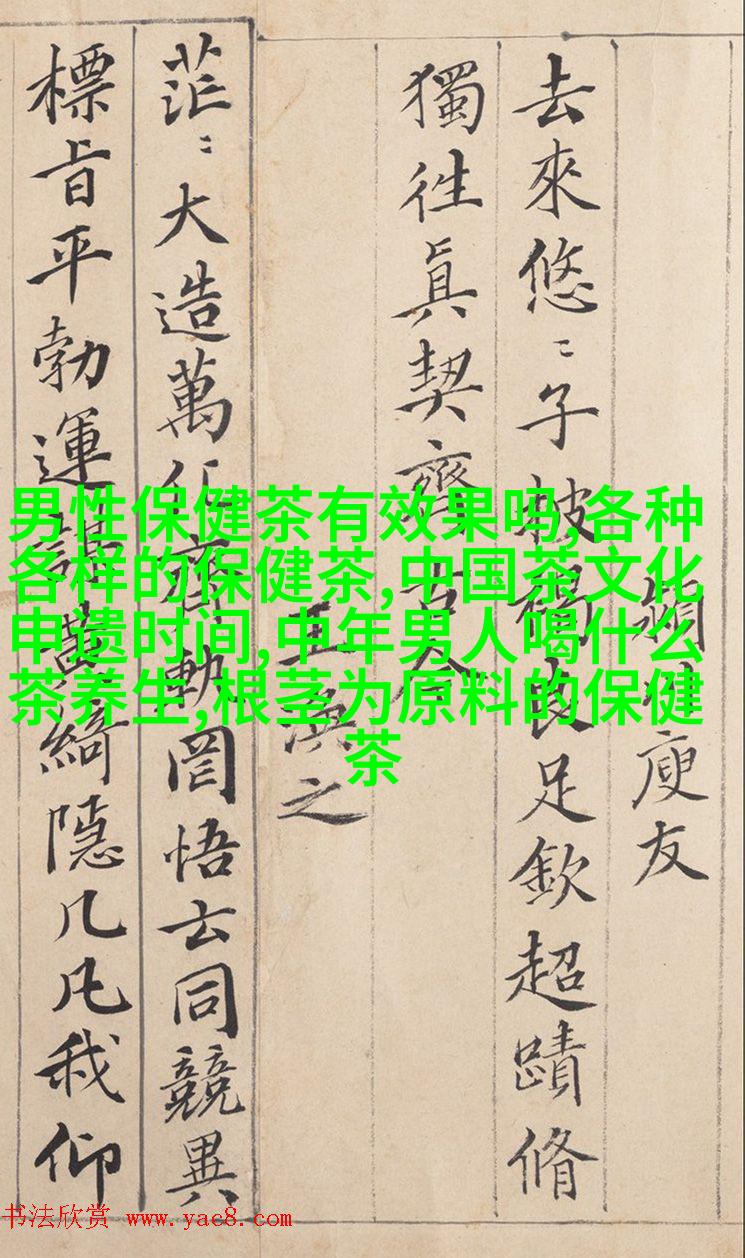 庾友
去來悠〻子被褐良足欽超蹟脩
獨往眞契齊古今
王渙之
茫〻大造萬化齊軌罔悟玄同競異
標旨平勃運謀黃綺隱几凡我仰
男性保健茶有效果吗,各种
各样的保健茶,中国茶文化
申遗时间,中年男人喝什么
茶养生,根茎为原料的保健
茶
书法欣赏 www.yac8.com